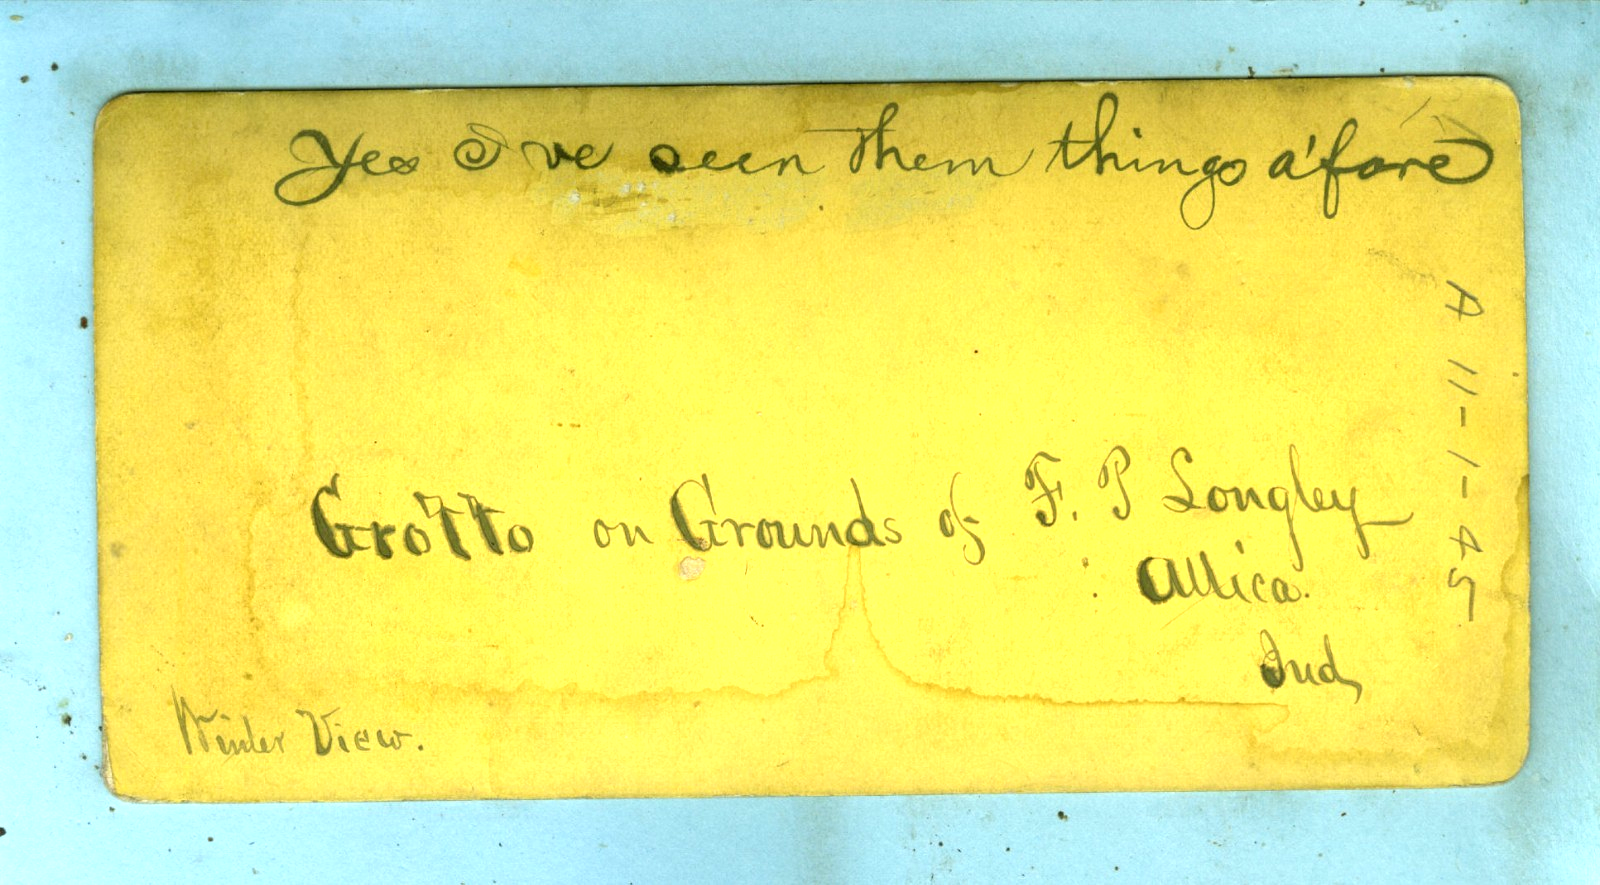 Yes I've seen them things a'fore
Grotto on Grounds of F. P Longley
Attica.
Ind,
Winter View.
A 11-1-A5